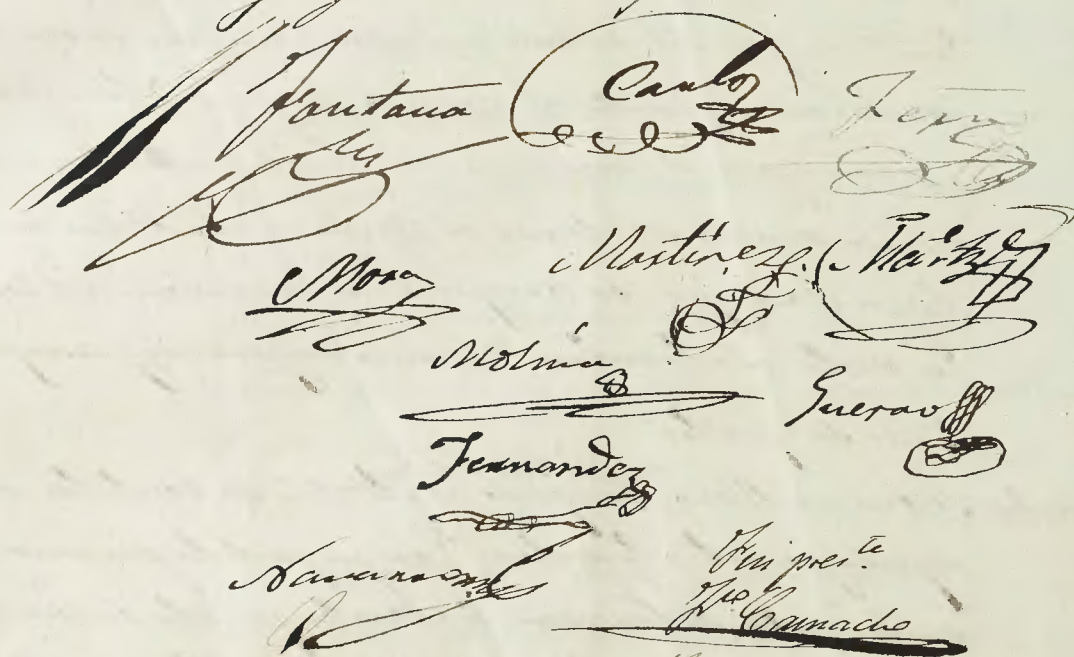 Fontana Carlos
Mora Martinez Martz
Molina Guerao
Fernandez
Navarro
Fui pres.te
Fco Camacho